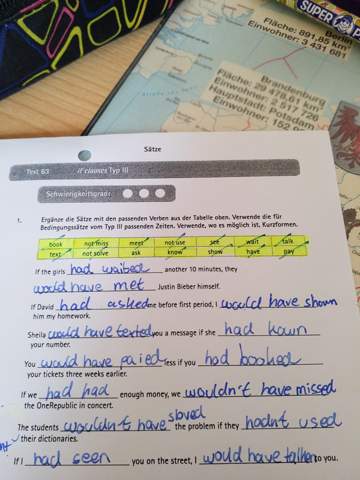 SUPER P
Berlin
Fläche: 891,85 km²
Einwohner: 3 431 681
Brandenburg
Fläche: 29 478,61 km²
Einwohner: 2 517 726
Hauptstadt: Potsdam
Einwohner: 152 9
Sätze
Test 63 if clauses Typ III
Schwierigkeitsgrad:
1. Ergänze die Sätze mit den passenden Verben aus der Tabelle oben. Verwende die für
Bedingungssätze vom Typ III passenden Zeiten. Verwende, wo es möglich ist, Kurzformen.
book not miss meet not use see wait talk
text not solve ask know show have pay
If the girls had waibed another 10 minutes, they
would have met Justin Bieber himself.
If David had asked me before first period, I would have shown
him my homework.
Sheila would have texted you a message if she had kown
your number.
You would have paied less if you had booked
your tickets three weeks earlier.
If we had had enough money, we wouldn't have missed
the OneRepublic in concert.
sloved
The students wouldn't have the problem if they hadnt used
their dictionaries.
If I had seen you on the street, I would have talken to you.